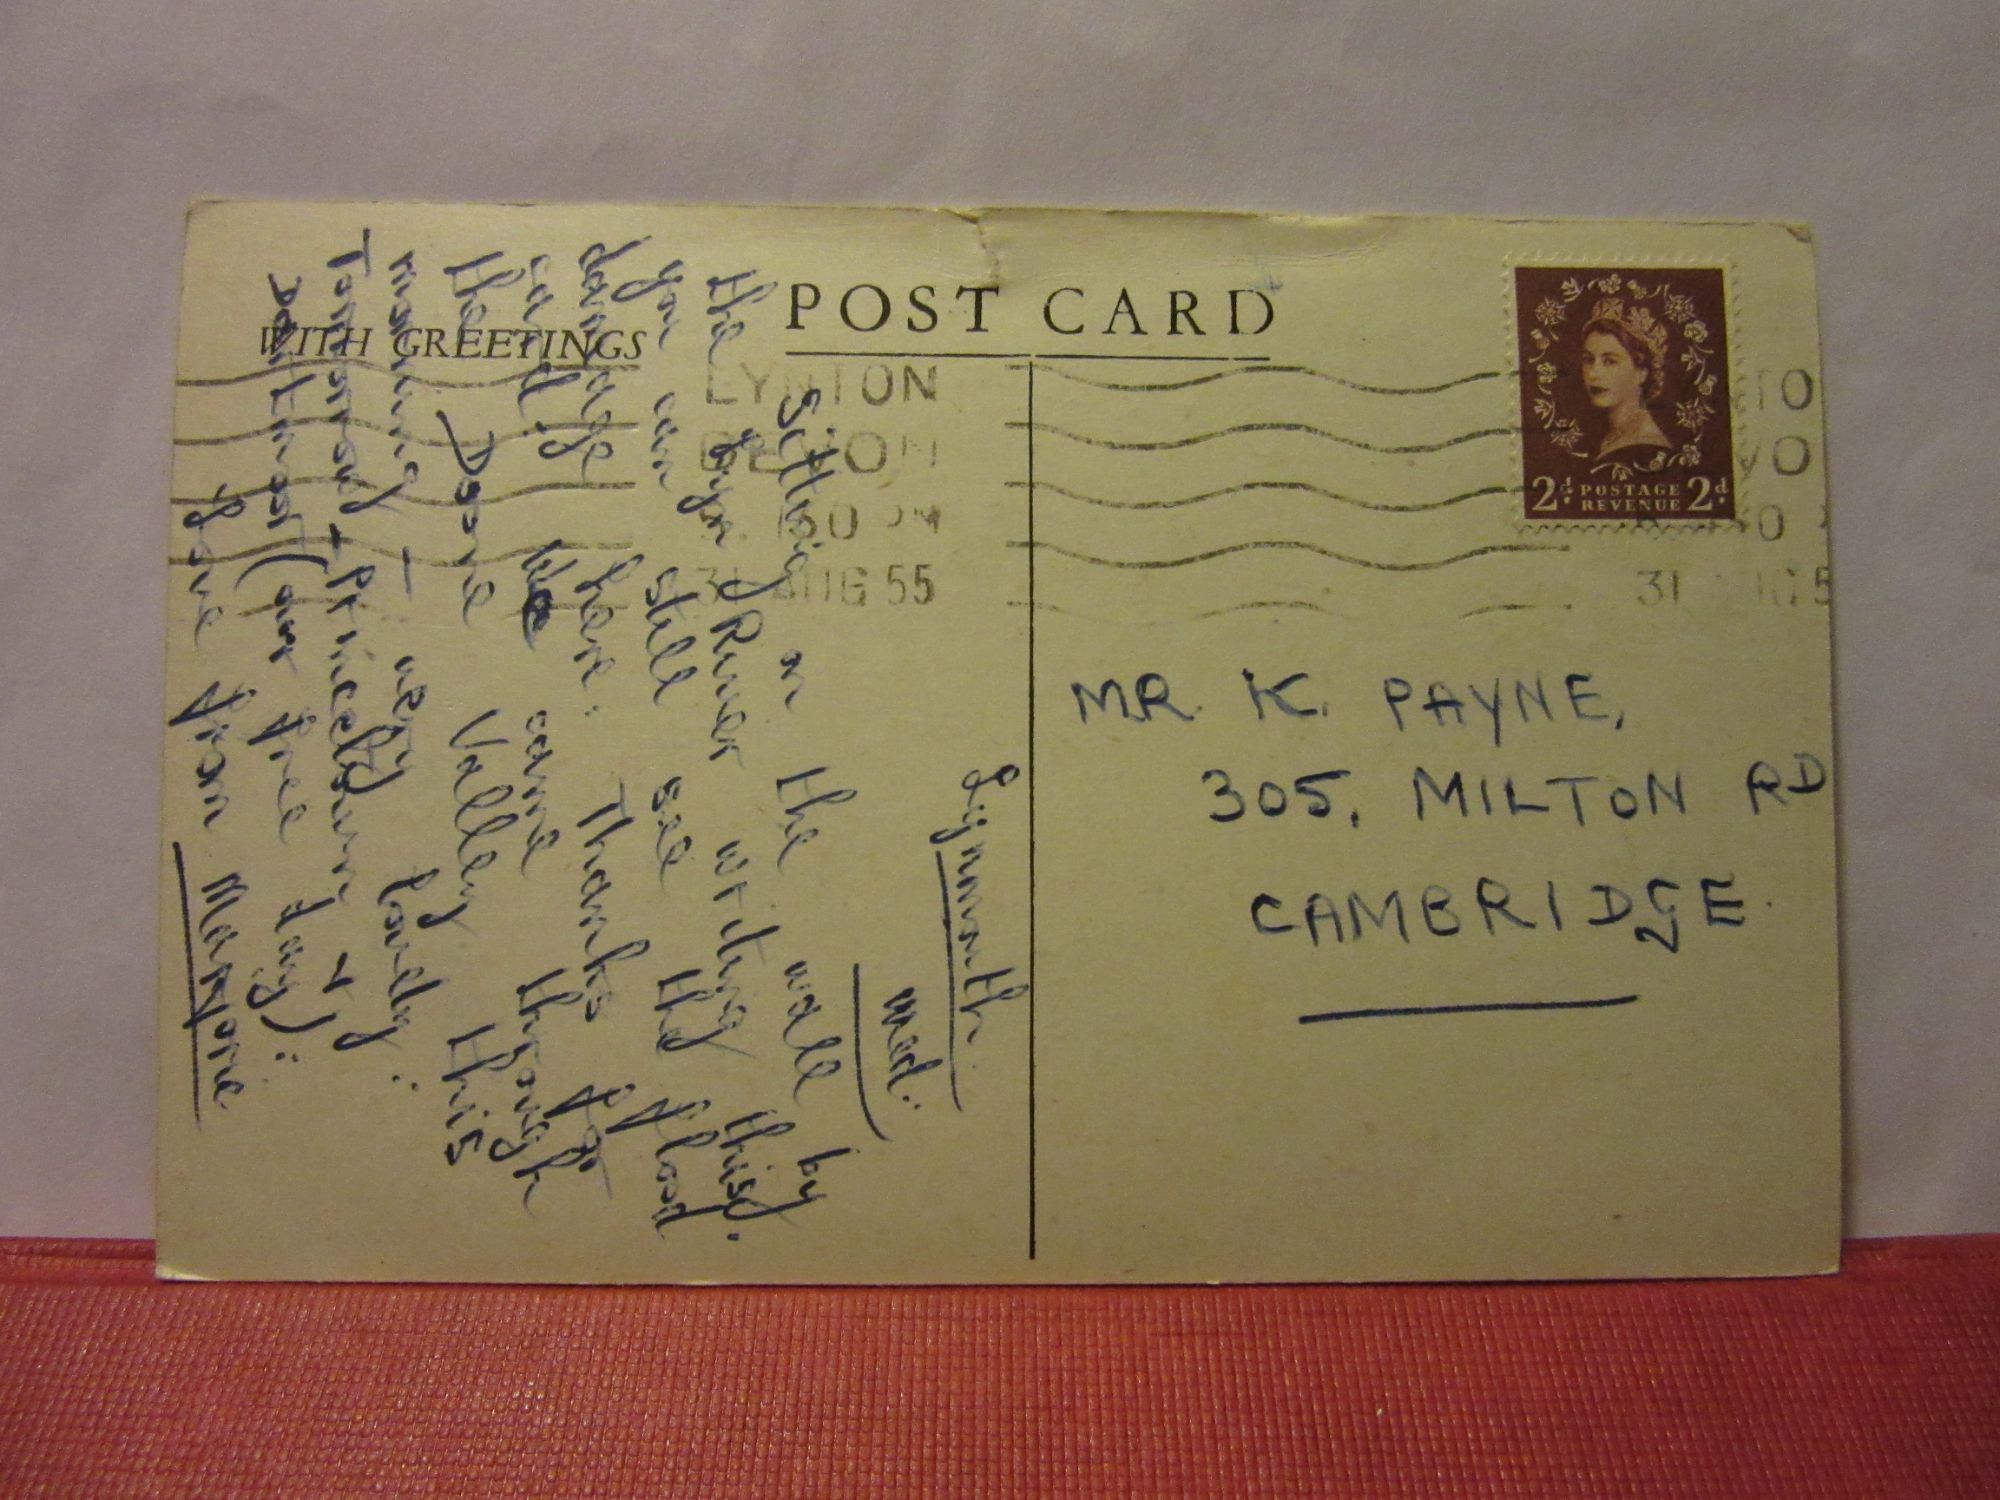 POST CARD
WITH GREETINGS
LYNTON
DEVON
31 AUG 55
2d POSTAGE REVENUE 2d
Lynmouth.
Wed.
Sitting on the wall by
the Lyn River writing this.
You can still see the flood
damage here. Thanks for
card. We came through
the Doone Valley this
morning – very lovely.
Tomorrow – Princetown &
Dartmoor (our free day).
Love from
MR. K. PAYNE,
305, MILTON RD
CAMBRIDGE.